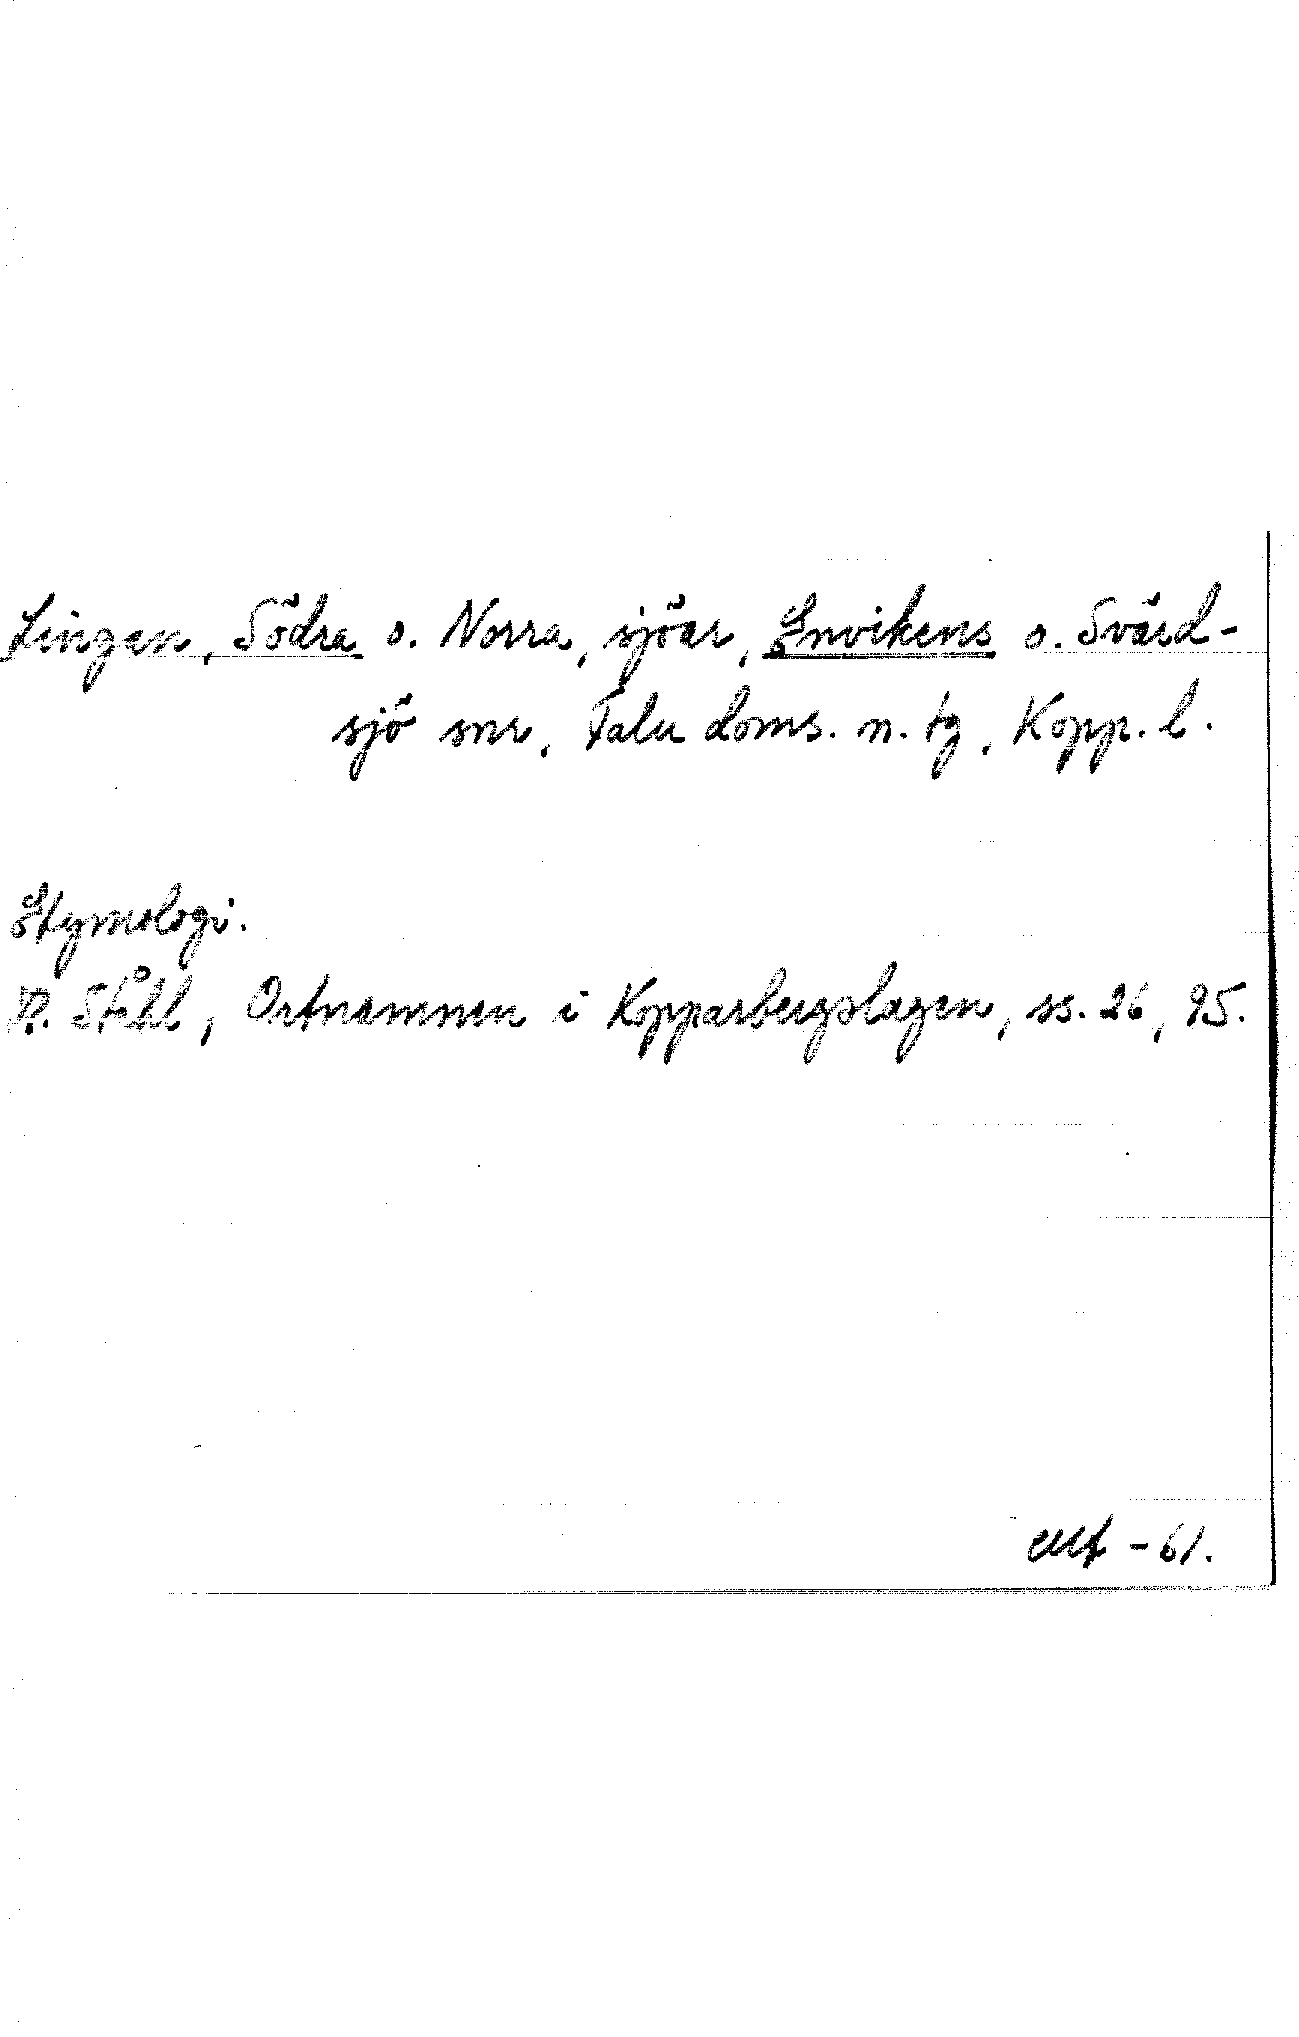 Lingen, Södra o. Norra, sjöar, Envikens o. Svärd-
sjö snr, Falu doms. n. tg, Kopp. l.
Etymologi.
H. Ståhl, Ortnamnen i Kopparbergslagen, ss. 26, 95.
-61.